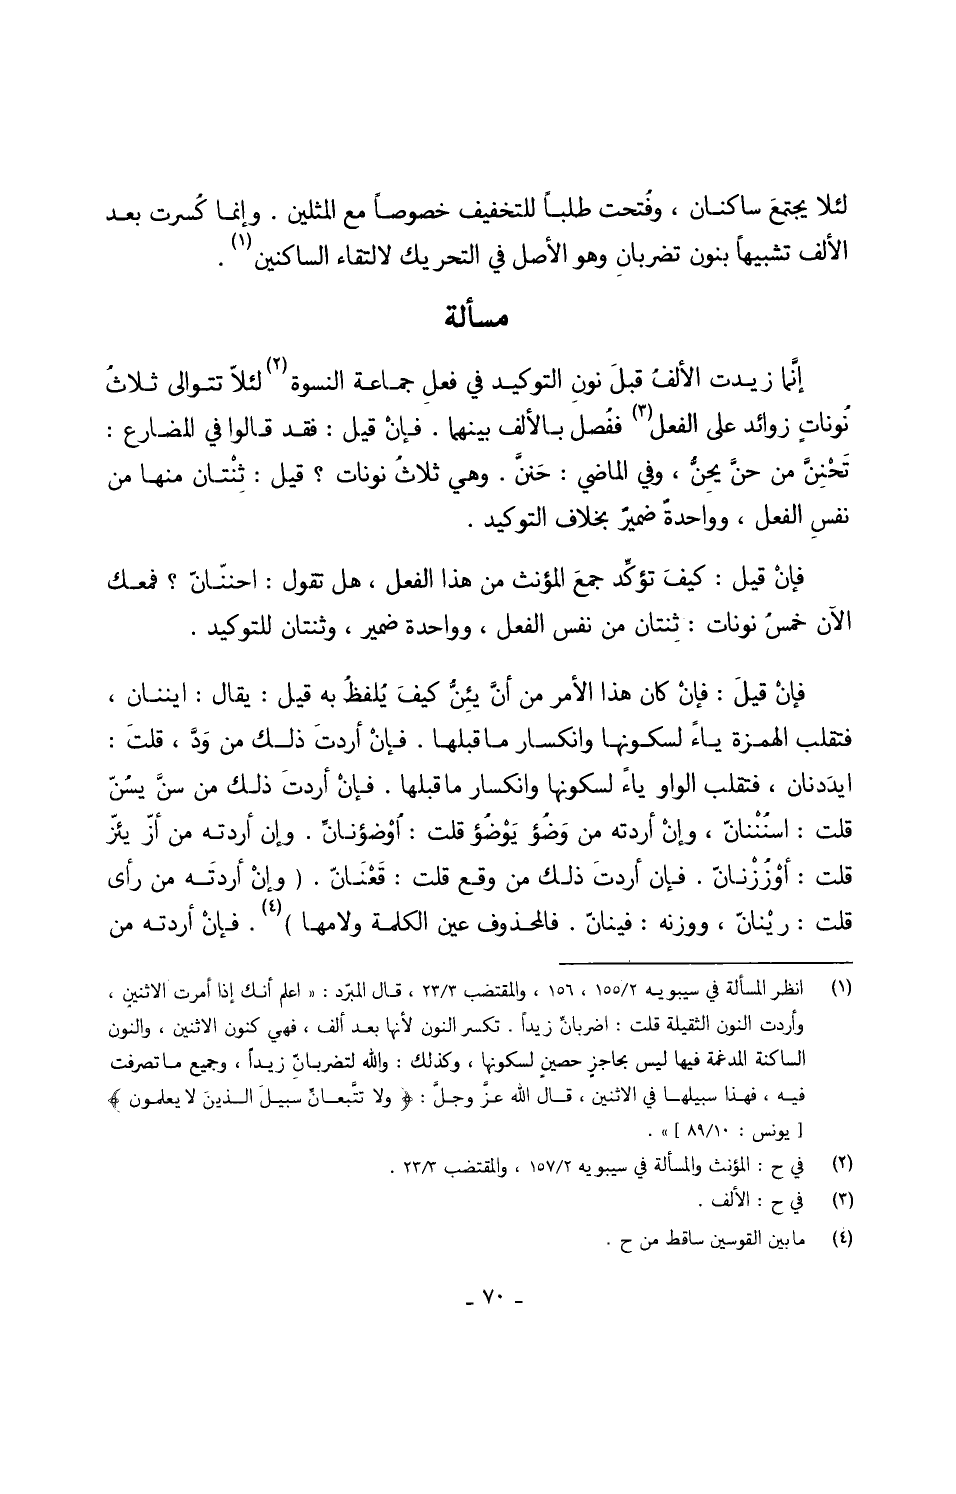 لئلا يجتمعَ ساكنان ، وفُتحت طلباً للتخفيف خصوصاً مع المثلين . وإنما كُسرت بعد
الألف تشبيهاً بنون تضربانِ وهو الأصل في التحريك لالتقاء الساكنين(١) .
مسألة
إنَّما زيدت الألفُ قبلَ نونِ التوكيد في فعلِ جماعة النسوة(٢) لئلاّ تتوالى ثلاثُ
نُوناتٍ زوائد على الفعل(٣) ففُصل بالألف بينها . فإنْ قيل : فقد قالوا في المضارع :
تَحْنِنَّ من حنَّ يحِنُّ ، وفي الماضي : حَننَّ . وهي ثلاثُ نونات ؟ قيل : ثِنْتان منها من
نفسِ الفعل ، وواحدةٌ ضميرٌ بخلاف التوكيد .
فإنْ قيل : كيفَ تؤكِّد جمعَ المؤنث من هذا الفعل ، هل تقول : احننّانّ ؟ فمعك
الآن خمسُ نونات : ثِنتان من نفس الفعل ، وواحدة ضمير ، وثنتان للتوكيد .
فإنْ قيلَ : فإنْ كان هذا الأمر من أنَّ يئِنُّ كيفَ يُلفظُ به قيل : يقال : ايننان ،
فتقلب الهمزة ياءً لسكونها وانكسار ماقبلها . فإنْ أردتَ ذلك من وَدَّ ، قلتَ :
ايدَدنان ، فتقلب الواو ياءً لسكونها وانكسار ماقبلها . فإنْ أردتَ ذلك من سنَّ يسُنّ
قلت : اسنُنْنانّ ، وإنْ أردته من وَضُؤ يَوْضُؤ قلت : اُوْضؤنانِّ . وإن أردته من أزّ يئزّ
قلت : أوْزُزْنانّ . فإن أردتَ ذلك من وقع قلت : قَعْنَانّ . ( وإنْ أردتَه من رأى
قلت : ريْنانّ ، ووزنه : فينانّ . فالمحذوف عين الكلمة ولامها )(٤) . فإنْ أردته من
(١) انظر المسألة في سيبويه ١٥٥/٢ ، ١٥٦ ، والمقتضب ٢٣/٣ ، قال المبّرد : « اعلم أنك إذا أمرت الاثنينِ ،
وأردت النون الثقيلة قلت : اضربانِّ زيداً . تكسر النون لأنها بعد ألف ، فهي كنون الاثنين ، والنون
الساكنة المدغمة فيها ليس بحاجزٍ حصينٍ لسكونها ، وكذلك : والله لتضربانّ زيداً ، وجميع ماتصرفت
فيه ، فهذا سبيلها في الاثنين ، قال الله عزَّ وجلَّ : ﴿ ولا تتَّبعانِّ سبيلَ الذينَ لا يعلمون ﴾
[ يونس : ٨٩/١٠ ] » .
(٢) في ح : المؤنث والمسألة في سيبويه ١٥٧/٢ ، والمقتضب ٢٣/٣ .
(٣) في ح : الألف .
(٤) مابين القوسين ساقط من ح .
- ٧٠ -